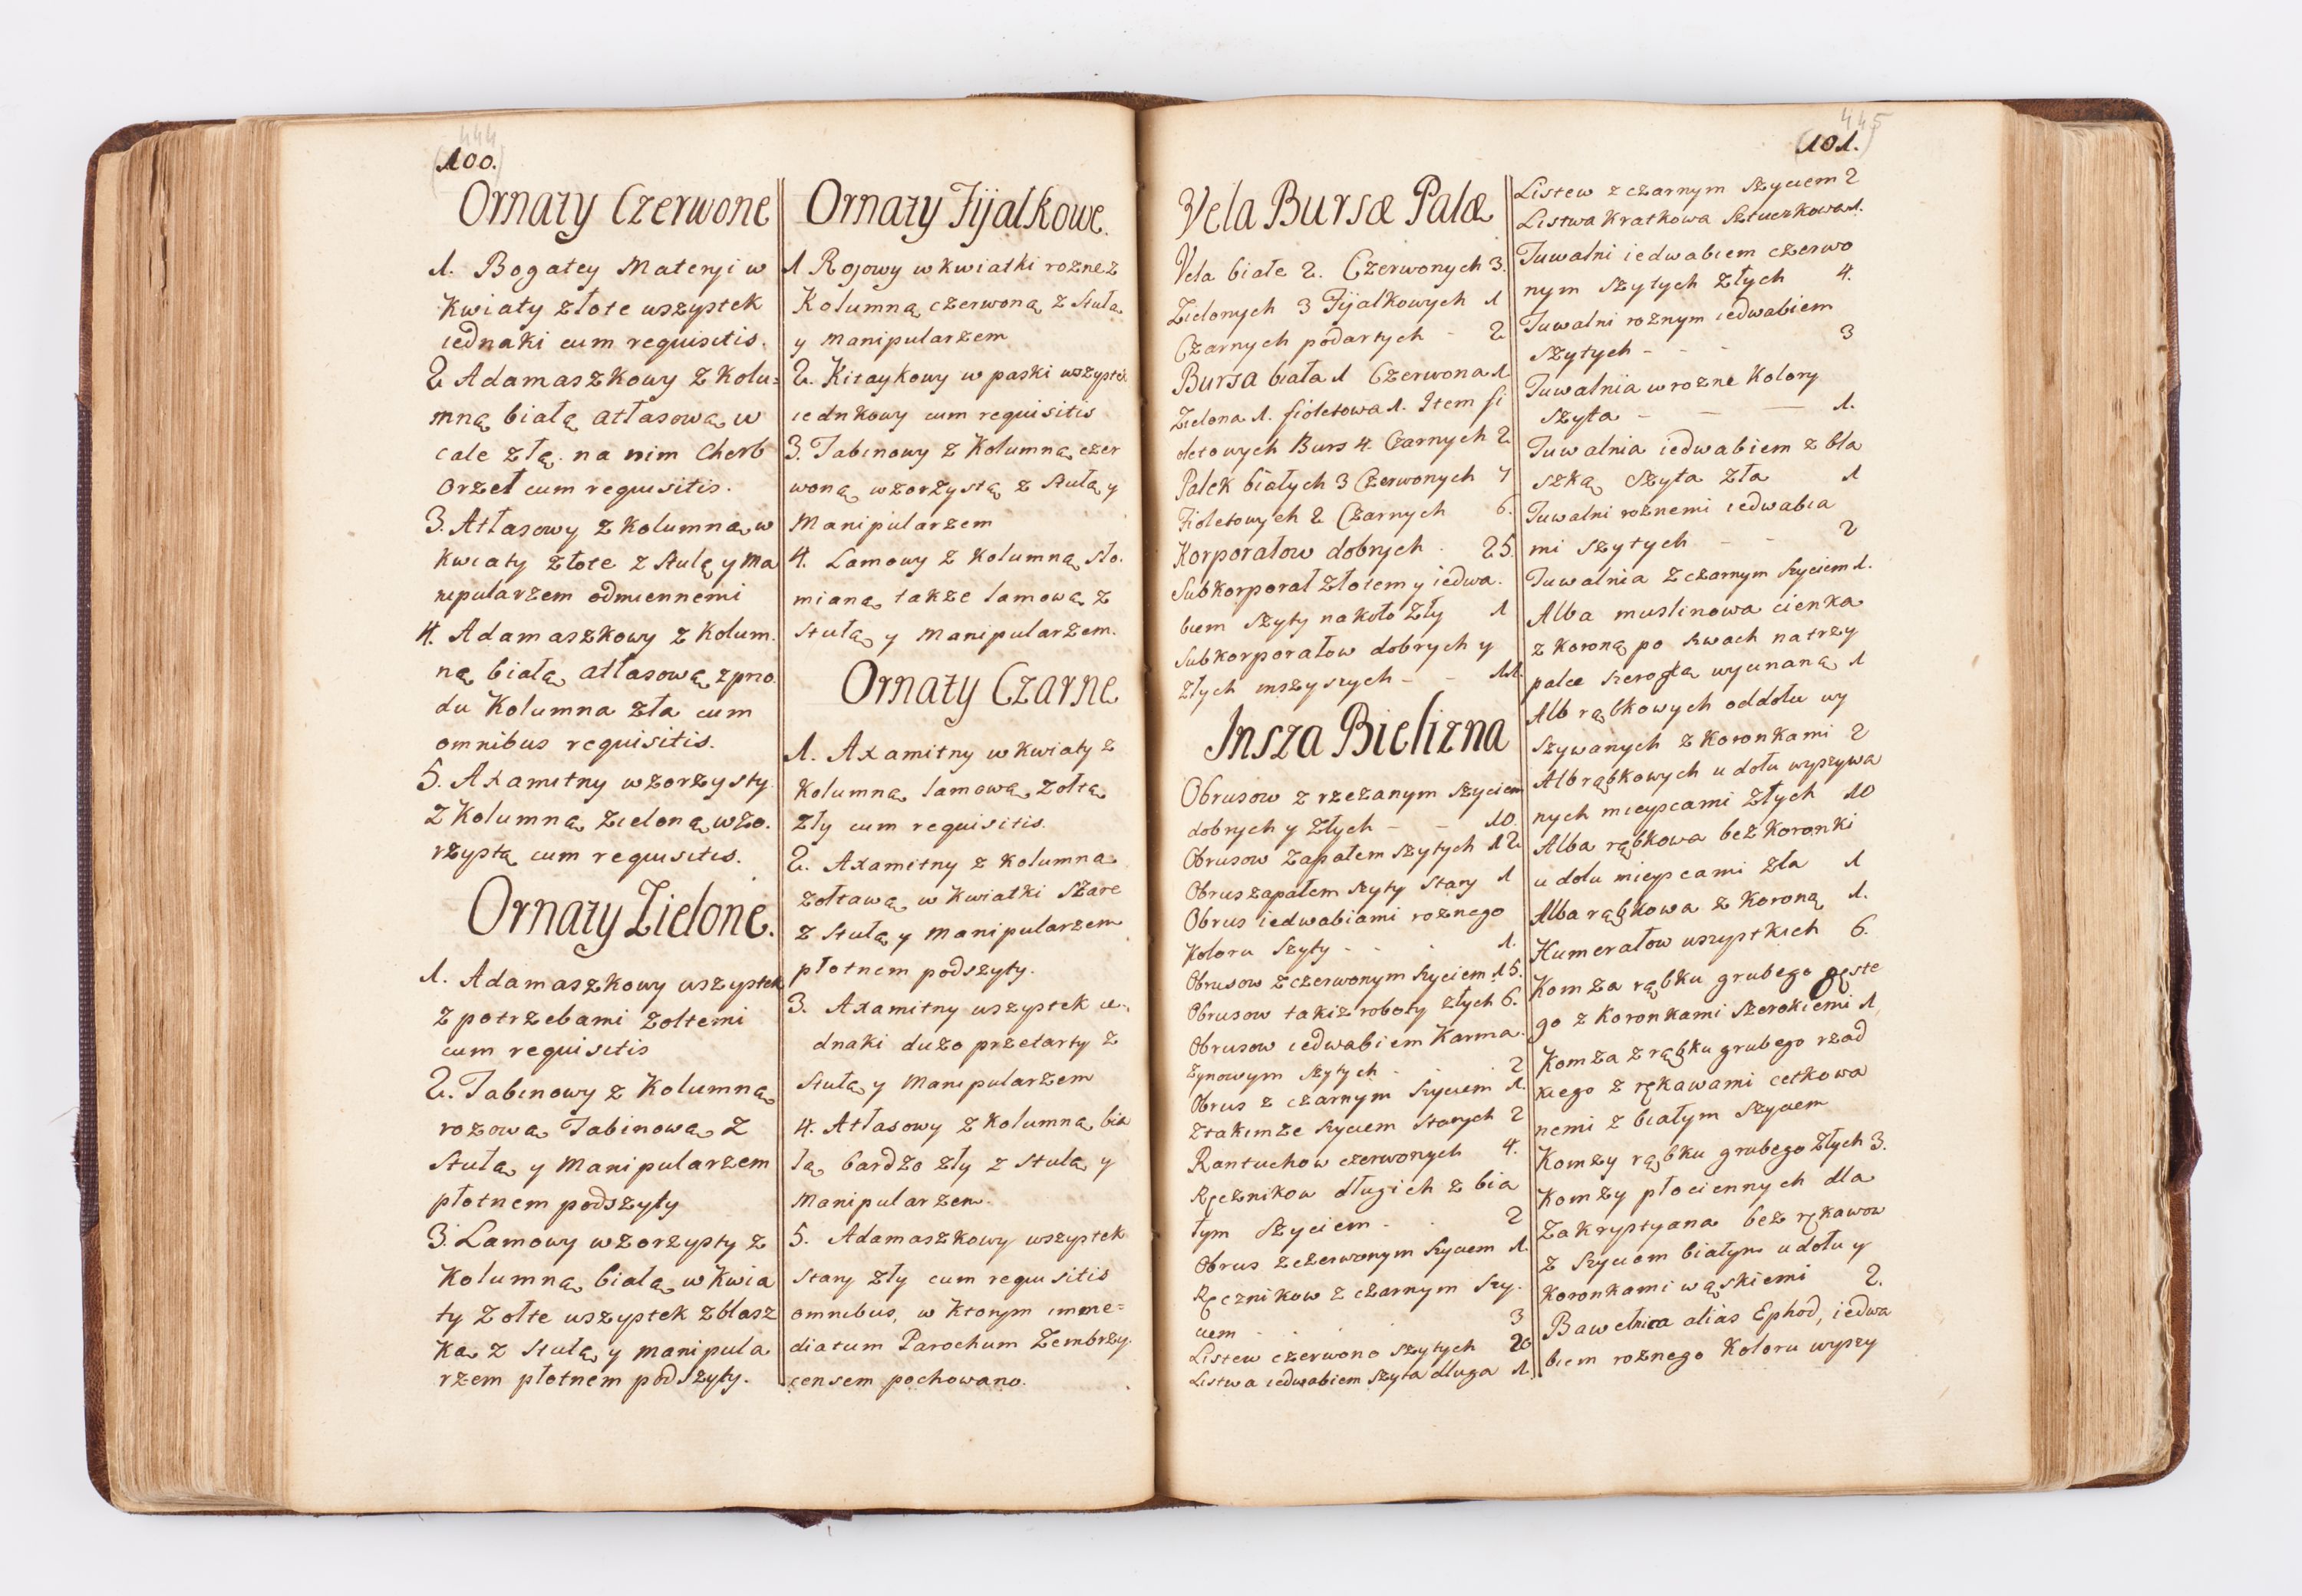 444
100.
Ornaty Czerwone
1. Bogatey Materyi w
Kwiaty złote wszystek
iednaki cum requisitis.
2 Adamaszkowy z Kolu=
mną białą atłasową w
cale złą. na nim Cherb
Orzeł cum requisitis.
3. Atłasowy z Kolumną w
Kwiaty złote z Stułą y Ma
nipularzem odmiennemi
4. Adamaszkowy z Kolum.
ną białą atłasową z przo
du Kolumna zła cum
omnibus requisitis.
5. Axamitny wzorzysty
z Kolumną zieloną wzo.
rzystą cum requisitis.
Ornaty Zielone.
1. Adamaszkowy wszystek
z potrzebami zołtemi
cum requisitis
2. Tabinowy z Kolumną
rozową Tabinową z
Stułą y Manipularzem
płotnem podszyty
3. Lamowy wzorzysty z
Kolumną białą w Kwia
ty Zołte wszystek z blasz
ką z Stułą y manipula
rzem płotnem podszyty.
Ornaty Fijałkowe.
1 Rozowy w kwiatki rozne z
Kolumną czerwoną z Stułą
y Manipularzem
2. Kitaykowy w paski wszystek
iednkowy cum requisitis
3. Tabinowy z Kolumną czer
woną wzorzystą z Stułą y
Manipularzem
4. Lamowy z Kolumną sło.
mianą także lamową z
Stułą y Manipularzem.
Ornaty Czarne
1. Axamitny w kwiaty z
Kolumną lamową Zołtą
zły cum requisitis.
2. Axamitny z Kolumną
zołtawą w Kwiatki szare
z Stułą y Manipularzem
płotnem podszyty.
3. Axamitny wszystek ie.
dnaki duzo przetarty z
Stułą y Manipularzem
4. Atłasowy z Kolumną bia
łą bardzo zły z Stułą y
Manipularzem.
5. Adamaszkowy wszystek
stary zły cum requisitis
omnibus, w Ktorym imme=
diatum Parochum Zembrzy.
censem pochowano.
445
101.
Vela Bursæ Palæ
Vela białe 2. Czerwonych 3.
Zielonych 3 Fijałkowych 1
Czarnych podartych - 2
Bursa biała 1 Czerwona 1
Zielona 1. fioletowa 1. Item fi
oletowych Burs 4. Czarnych 2
Palek białych 3 Czerwonych 7
Fioletowych 2 Czarnych 6.
Korporałow dobrych - 25.
Subkorporał złotem y iedwa.
biem szyty na koło zły 1
Subkorporałow dobrych y
złych inszyszych - - 11.
Insza Bielizna
Obrusow z rzezanym szyciem
dobrych y złych - - 10.
Obrusow zapałem szytych 12
Obrus zapałem szyty stary 1
Obrus iedwabiami roznego
Koloru szyty - - - 1.
Obrusow z czerwonym szyciem 15.
Obrusow takiż roboty złych 6.
Obrusow iedwabiem Karma.
zynowym szytych - 2
Obrus z czarnym szyciem 1.
Z takimże szyciem starych 2
Rantuchow czerwonych 4.
Ręcznikow długich z bia
łym szyciem - - 2
Obrus z czerwonym szyciem 1.
Ręcznikow z czarnym szy.
ciem - - - 3
Listew czerwono szytych 20
Listwa iedwabiem szyta długa 1.
Listew z czarnym szyciem 2
Listwa Kratkowa Sztuczkowa 1.
Tuwalni iedwabiem czerwo
nym szytych złych 4.
Tuwalni roznym iedwabiem
szytych - - - 3
Tuwalnia w rozne Kolory
szyta - - - 1.
Tuwalnia iedwabiem z bla
szką szyta zła 1
Tuwalni roznemi iedwabia
mi szytych - - 2
Tuwalnia z czarnym szyciem 1.
Alba muslinowa cienka
z koroną po szwach na trzy
palce szeroką wycinaną 1
Alb rąbkowych od dołu wy
szywanych z Koronkami 2
Alb rąbkowych u dołu wyszywa
nych mieyscami złych 10
Alba rąbkowa bez Koronki
u dołu mieyscami zła 1
Alba rąbkowa z Koroną 1.
Humerałow wszystkich 6.
Komża rąbku grubego gęste
go z Koronkami szerokiemi 1
Komża z rąbku grubego rzad
kiego z rękawami cetkowa
nemi z białym szyciem
Komży rąbku grubego złych 3.
Komży płociennych dla
Zakrystyana bez rękawow
z szyciem białym u dołu y
Koronkami wąskiemi 2.
Bawełnica alias Ephod, iedwa
biem roznego Koloru wyszy